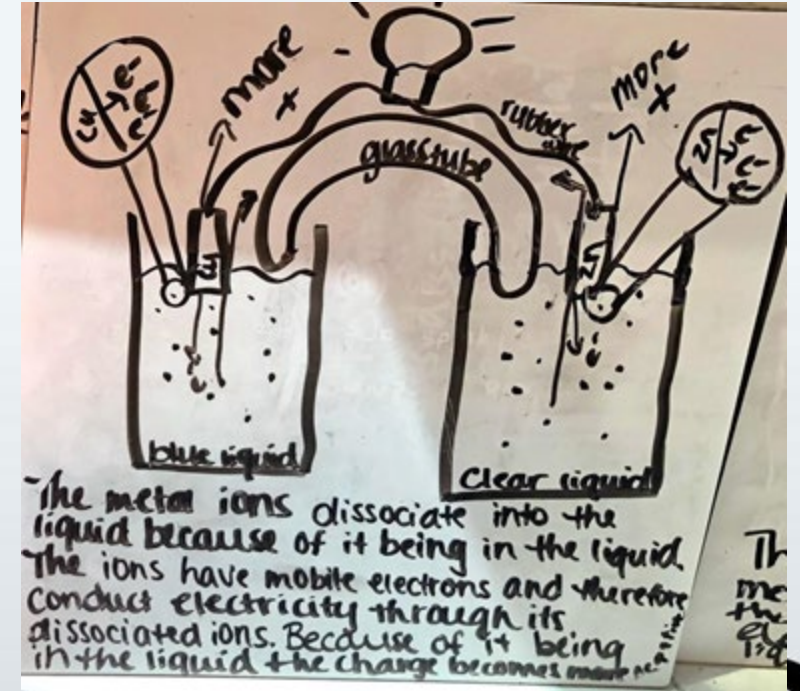 more
+
more
+
rubber
wire
glasstube
Cu
e-
e-
e-
Zn
e-
e-
e-
Cu
Zn
blue liquid
Clear liquid
The metal ions dissociate into the
liquid because of it being in the liquid.
The ions have mobile electrons and therefore
conduct electricity through its
dissociated ions. Because of it being
in the liquid the charge becomes more negative
Th
me
the